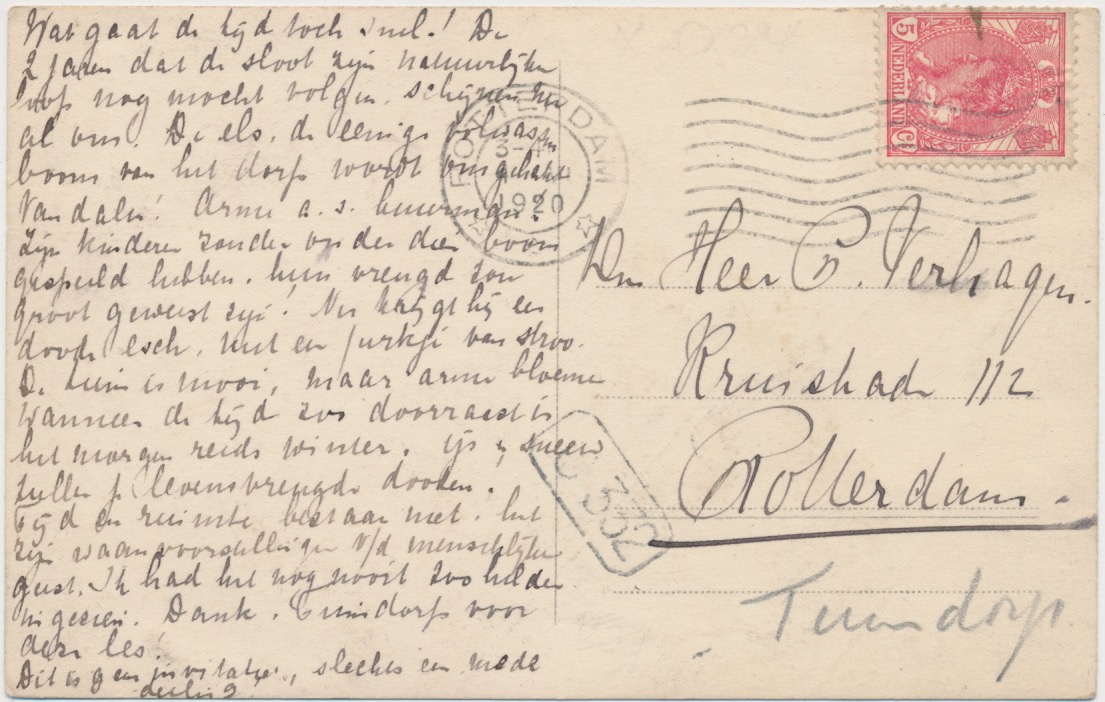 Wat gaat de tijd toch snel! De
2 jaren dat de sloot zijn natuurlijken
loop nog mocht volgen, schijnen
al om. De els, de eenige volwassen
boom van het dorp wordt omgehakt
Vandalen! Arme a.s. buurman!
Zijn kinderen zouden onder dien boom
gespeeld hebben, hun vreugd zou
groot geweest zijn! Nu krijgt hij een
doode esch, met een jurkje van stroo.
De tuin is mooi, maar arme bloemen
Wanneer de tijd zoo doorraast is
het morgen reids winter. Ijs en sneeuw
zullen je levensvreugde dooden.
Tijd en ruimte bestaan niet. het
zijn waanvoorstellingen v/d menschlijken
geest. Ik had het nog nooit zoo helder
ingezien. Dank. Tuindorp voor
deze les!
Dit is geen invitatie, slechts een mede
deeling
ROTTERDAM
3-4
1920
5 NEDERLAND Ct
Den Heer C. Verhagen.
Kruiskade 112
Rotterdam.
C 332
Tuindorp.